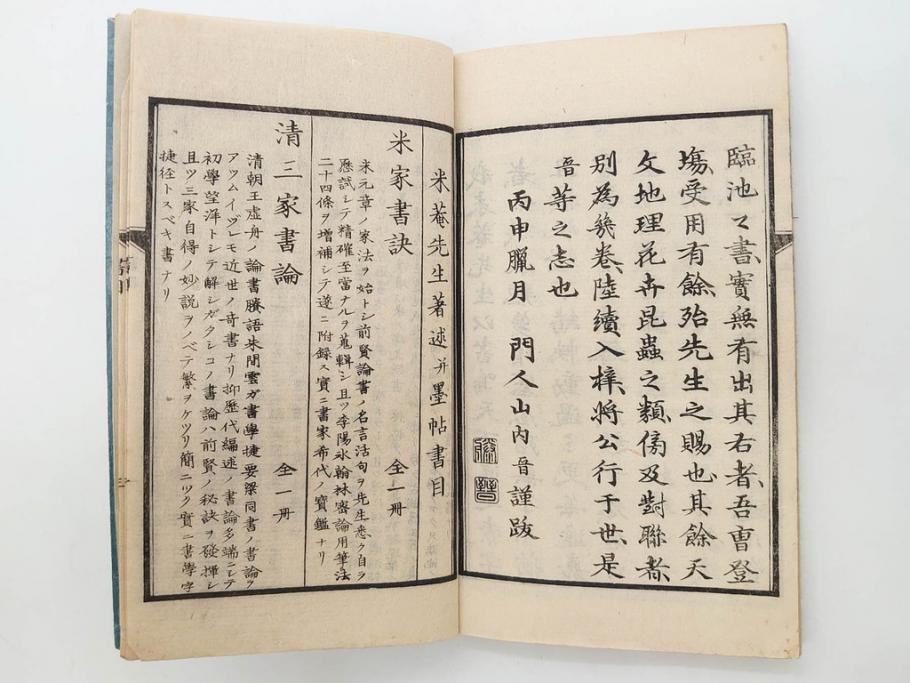 臨池之書實無有出其右者吾曹登
塲受用有餘殆先生之賜也其餘天
文地理花卉昆蟲之類傍及對聯者
別為幾卷陸續入梓將公行于世是
晉等之志也
丙申臘月門人山内晉謹跋
米菴先生著述并墨帖書目
米家書訣 全一冊
米元章ノ家法ヲ始トシ前賢論書ノ名言活句ヲ先生悉ク自ラ
應試シテ精確至當ナルヲ蒐輯シ且ツ李陽冰翰林密論用筆法
二十四條ヲ増補シテ遂ニ附録ス實ニ書家希代ノ寶鑑ナリ
清三家書論 全一冊
清朝王虚舟ノ論書賸語朱閒雲ガ書學捷要梁同書ノ書論ヲ
アツム イヅレモ近世ノ奇書ナリ抑歴代編述ノ書論多端ニシテ
初學望洋トシテ解シガタシコノ書論ハ前賢ノ秘訣ヲ發揮シ
且ツ三家自得ノ妙説ヲノベテ繁ヲケヅリ簡ニツク實ニ書學字
捷径トスベキ書ナリ